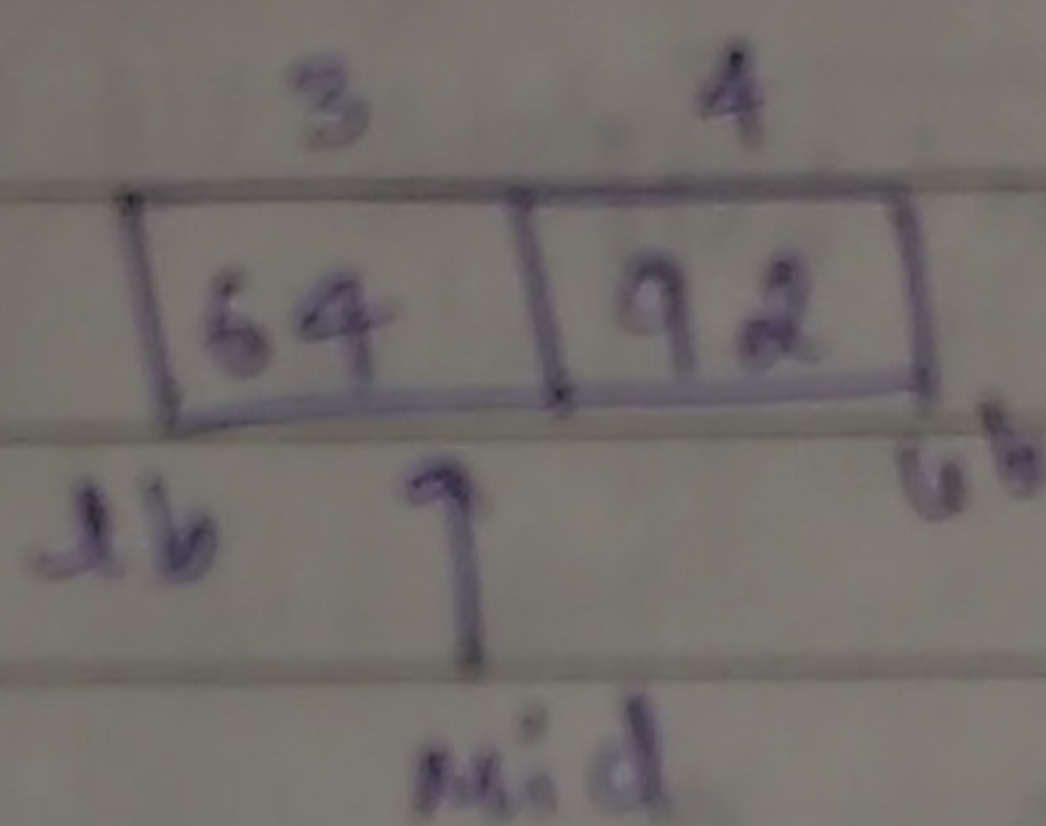 3 4
64 92
lb ub
mid